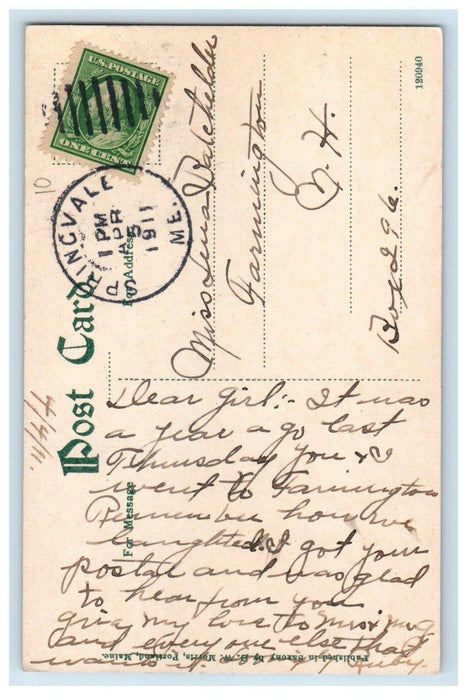 U.S. POSTAGE
ONE CENT
SPRINGVALE
ME.
APR
5
1 PM
1911
120940
10
4/4/11.
Post Card
For Address
For Message
Miss Lena Batchelder
Farmington
N. H.
Box 296.
Dear Girl:- It was
a year ago last
Thursday you & I
went to Farmington
Remember how we
laughted. I got your
postal and was glad
to hear from you
give my love to Miss
and every one else that
wants it. Ruby
Published in Saxony by G. W. Morris, Portland, Maine.